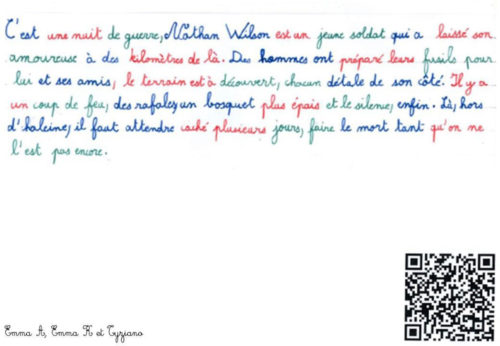 C'est une nuit de guerre, Nathan Wilson est un jeune soldat qui a laissé son
amoureuse à des kilomètres de là. Des hommes ont préparé leurs fusils pour
lui et ses amis, le terrain est à découvert, chacun détale de son côté. Il y a
un coup de feu, des rafales, un bosquet plus épais et le silence, enfin. Là, hors
d'haleine, il faut attendre caché plusieurs jours, faire le mort tant qu'on ne
l'est pas encore.
Emma A, Emma K et Tyziano